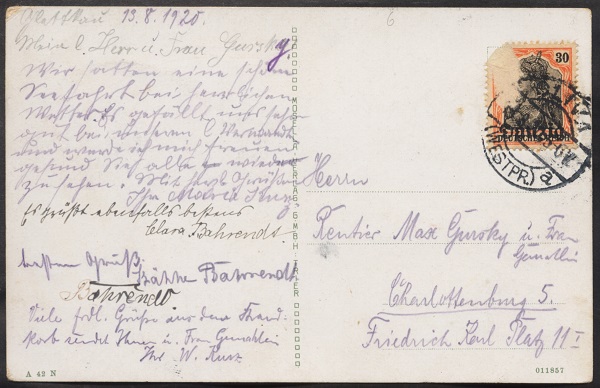 Glettkau 13.8.1920.
Mein l. Herr u. Frau Gursky,
Wir hatten eine schöne
Seefahrt bei herrlichen
Wetter. Es gefällt uns sehr
gut bei unseren l. Verwandt.
und würde ich mich freuen
gesund Sie alle wieder
zu sehen. Mit herzl. Grüßen
Ihr Maria Kurz
Es grüßt ebenfalls bestens
Clara Bahrendt.
besten Gruß.
Käthe Bahrendt
Bahrendt
Viele frdl. Grüße aus dem Strand-
korb sendet Ihnen u. Frau Gemahlin
Ihr W. Kurz
A 42 N
30
Danzig
(WESTPR.) a
Herrn
Rentier Max Gursky u. Frau
Gemahlin
Charlottenburg 5.
Friedrich Karl Platz 11 I
011857